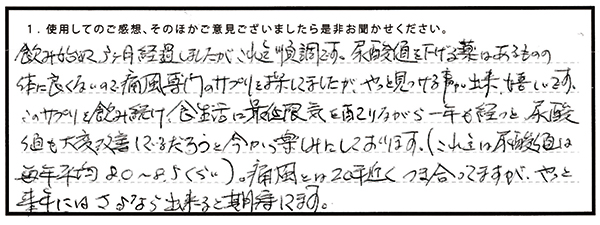 1. 使用してのご感想、そのほかご意見ございましたら是非お聞かせください。
飲み始めて3ヶ月経過しましたがこれ迄順調です。尿酸値を下げる薬はあるものの
体に良くないので痛風専門のサプリを探してましたが、やっと見つける事が出来、嬉しいです。
このサプリを飲み続け、食生活に最低限気を配りながら一年も経つと、尿酸
値も大変改善してるだろうと今から楽しみにしております。(これ迄は尿酸値は
毎年平均8.0〜8.5ぐらい)。痛風とは20年近くつき合ってますが、やっと
来年にはさよなら出来ると期待してます。